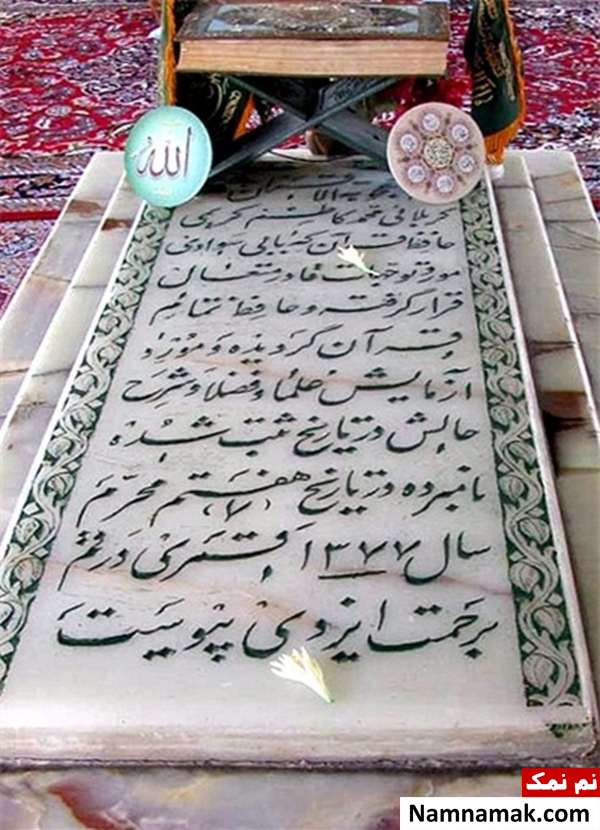 الله
کربلائی محمد کاظم کریمی
حافظ قرآن که با بی سوادی
مورد موهبت قادر منان
قرار گرفته و حافظ تمام
قرآن گردیده و مورد
آزمایش علما و فضلا و شرح
حالش در تاریخ ثبت شده
نامبرده در تاریخ هفتم محرم
(۷)
سال ۱۳۷۷ قمری در قم
برحمت ایزدی پیوست
نم نمک
Namnamak.com